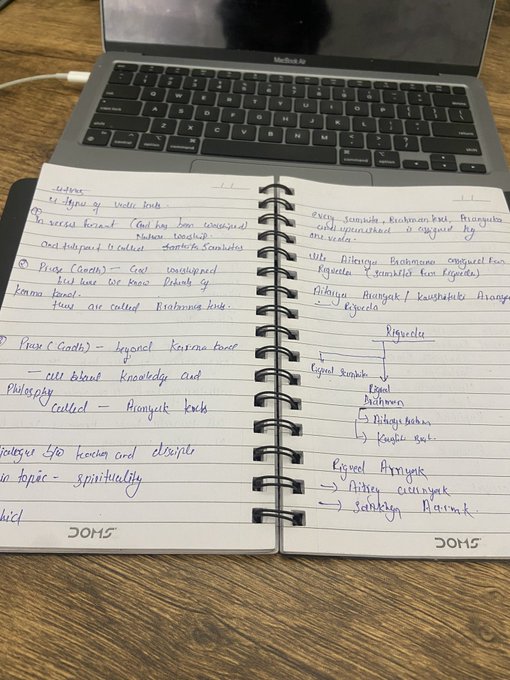 MacBook Air
4 types of vedic texts.
In verses format (God has been worshiped)
Nature worship.
and this part is called Samhitas
② Prose (Gadh) — God worshiped
but here we know Details of
karma kand.
this are called Brahmnas texts.
Prose (Gadh) — beyond Karma kand
— all about knowledge and
Philosophy
called — Aranyak texts
dialogue b/w teacher and disciple
in topic - spirituality
DOMS
every samhita, Brahman text, Aranyaka
and upanishad is assigned by
one veda.
Like Aitareya Brahmana assigned
Rigveda
Aitareya Aranyak / Kaushitaki Aranya
Rigveda
Rigveda
Rigved Samhita
Rigved
Brahman
→ Aitreya Brahm
→ Kaushit Brah.
Rigved Arnyak
→ Aitrey
→
DOMS